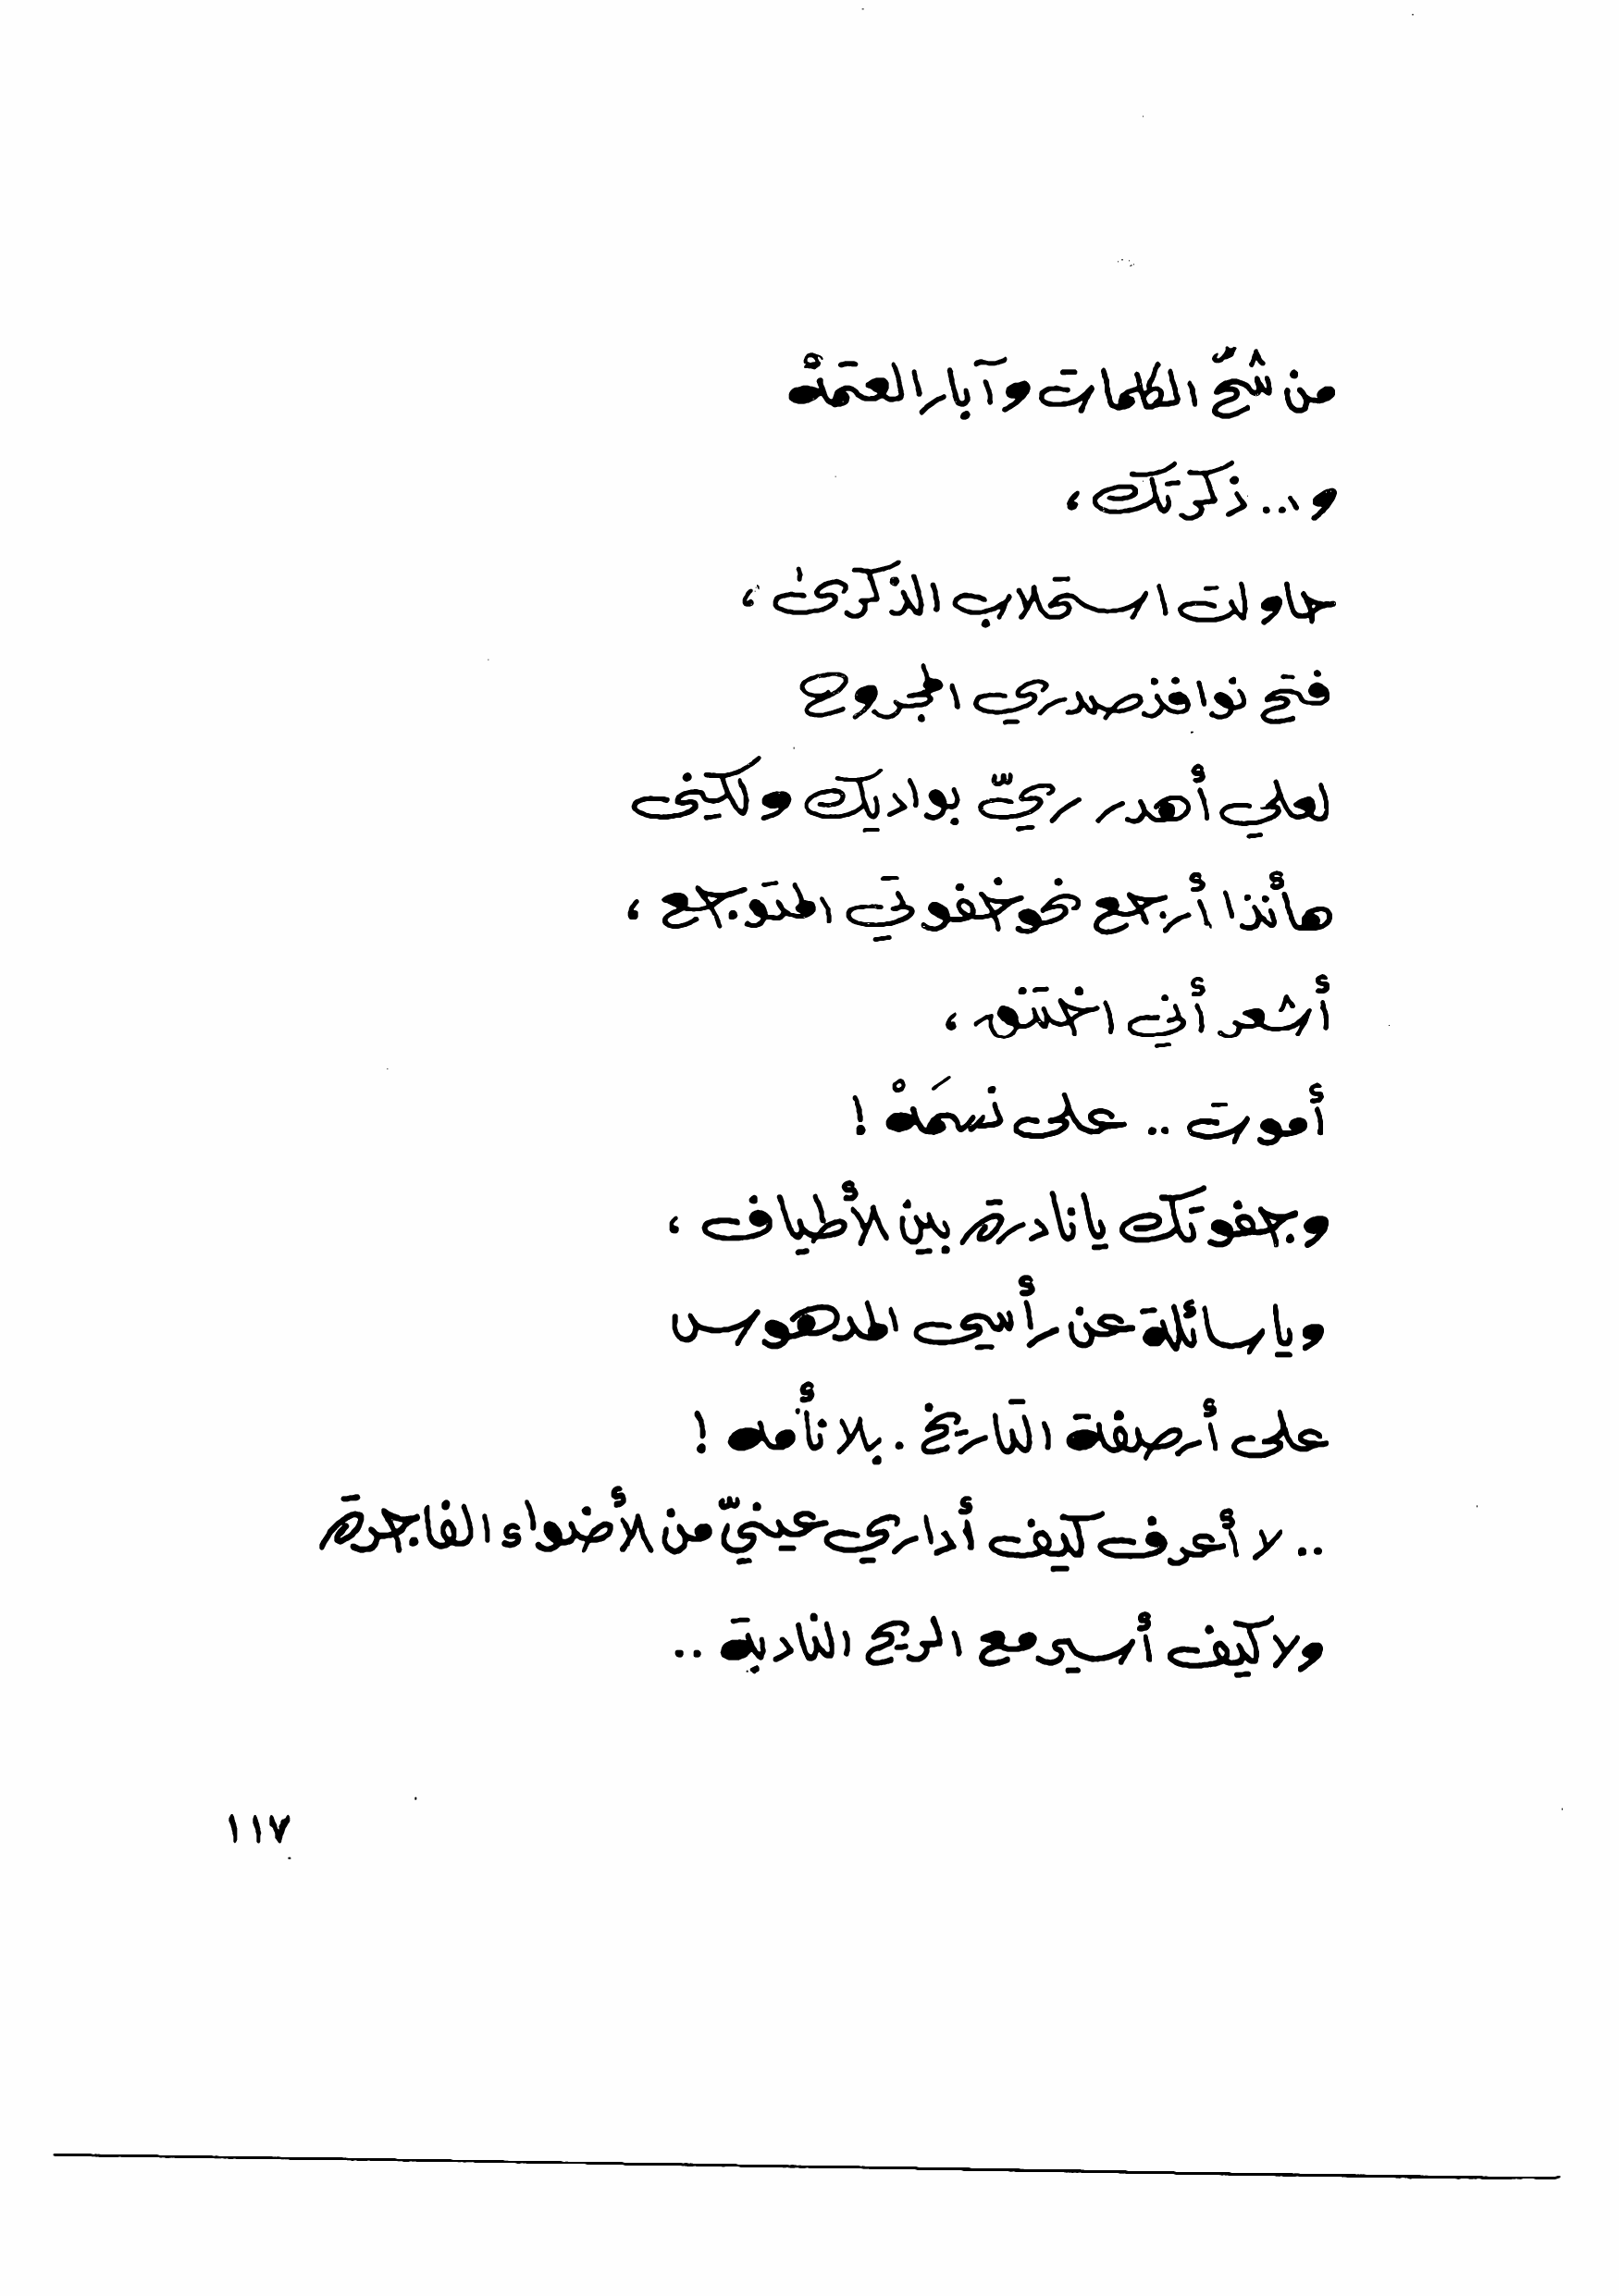 من شحّ الكلمات وآبار العتمهْ
و... ذكرتك،
حاولت استحلاب الذكرى،
فتح نوافذ صدري المجروح
لعلي أهدر ريّ بواديك ولكني
هأنذا أرجع نحو خفوتي المتوجع،
أشعر أني اختنق،
أموت .. على نسمَهْ !
وجفوتك يا نادرة بين الأطياف،
ويا سائلة عن رأسي المدهوس
على أرصفة التاريخ . بلا نأمه !
.. لا أعرف كيف أداري عينيّ من الأضواء الفاجرة
ولا كيف أسير مع الريح النادبة ..
١١٧